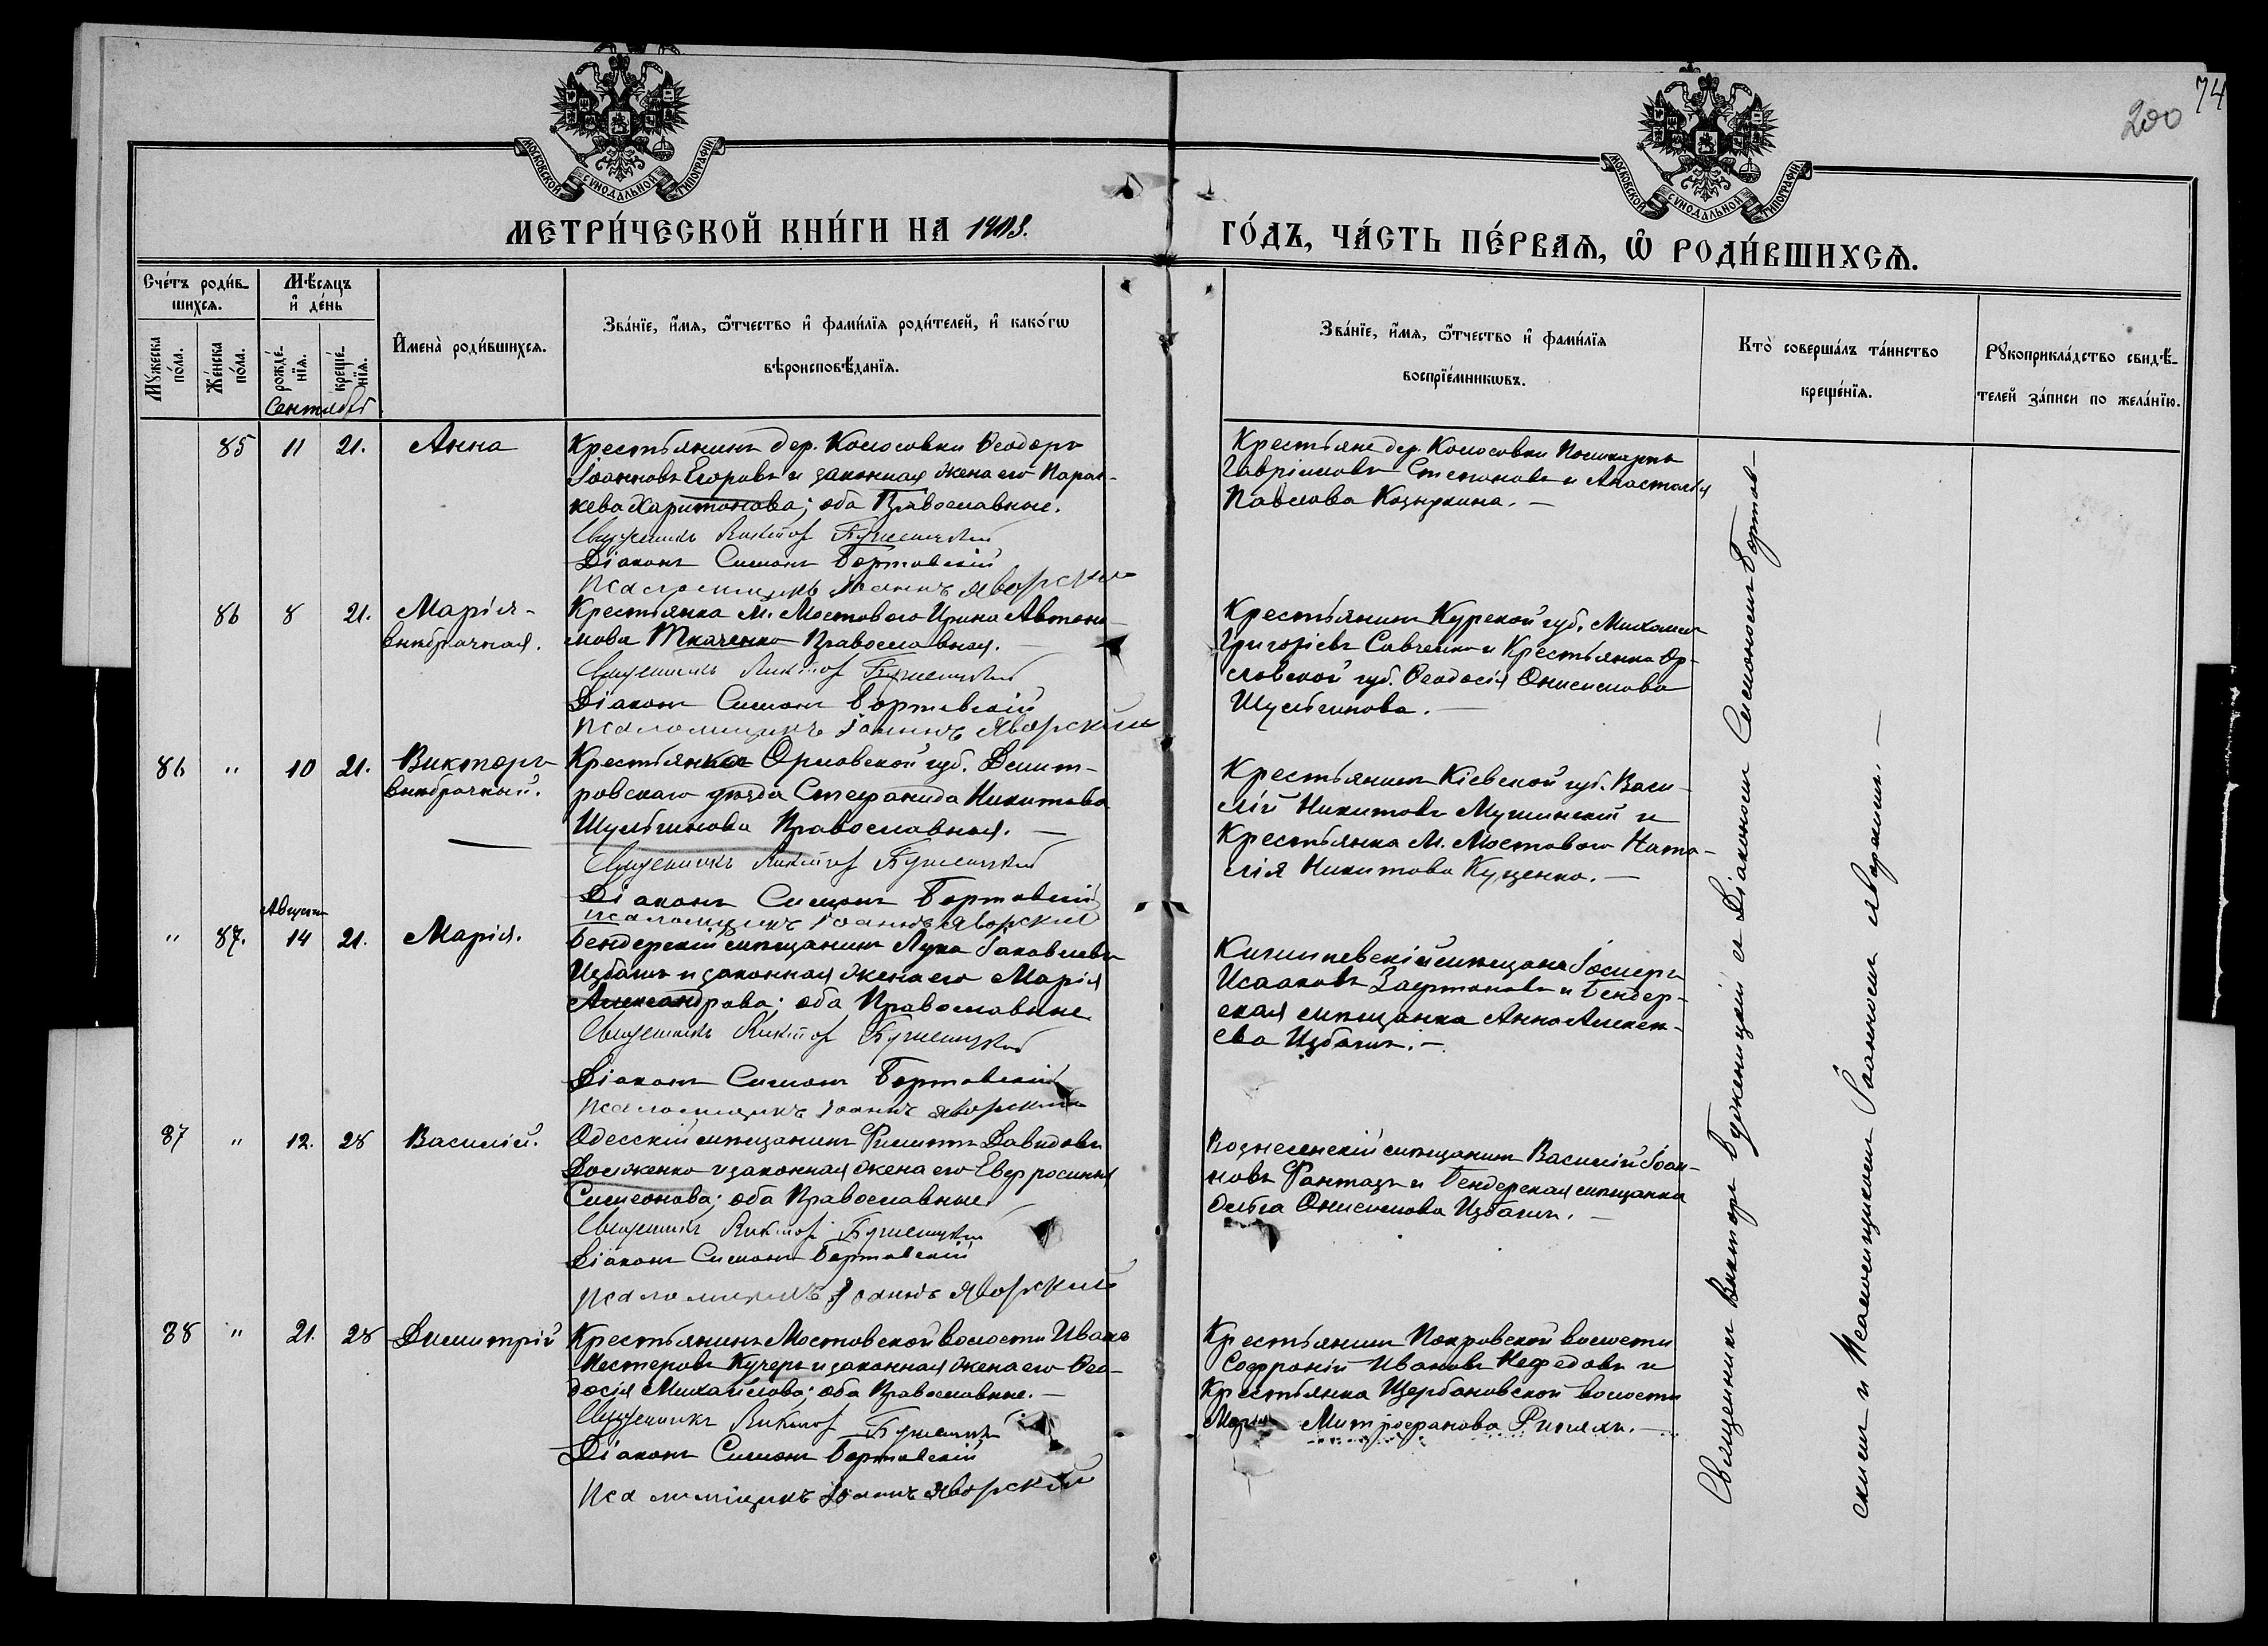 74
200
МОСКОВСКОЙ СѴНОДАЛЬНОЙ ТИПОГРАФІИ
МОСКОВСКОЙ СѴНОДАЛЬНОЙ ТИПОГРАФІИ
МЕТРИ́ЧЕСКОЙ КНИ́ГИ НА 1903.
ГО́ДЪ, ЧА́СТЬ ПЕ́РВАѦ, Ѡ҆ РОДИ́ВШИХСѦ.
Сче́тъ роди́в-
шихсѧ.
Мꙋжеска по́ла.
Же́нска по́ла.
Мѣ́сѧцъ
и҆ де́нь
рожде́-
нїѧ.
креще́-
нїѧ.
И҆мена̀ роди́вшихсѧ.
Зва́нїе, и҆́мѧ, ѻ҆́тчество и҆ фами́лїѧ роди́телей, и҆ како́гѡ
вѣроисповѣ́данїѧ.
Зва́нїе, и҆́мѧ, ѻ҆́тчество и҆ фами́лїѧ
воспрїе́мникѡвъ.
Кто̀ соверша́лъ та́инство
креще́нїѧ.
Рꙋкоприкла́дство свидѣ́-
телей за́писи по жела́нїю.
Сентябрь
85 11 21. Анна
Крестьянинъ дер. Колосовки Ѳеодоръ
Іоанновъ Егоровъ и законная жена его Парас-
кева Харитонова; оба Православные.
Священникъ Викторъ
Діаконъ Симонъ Бортовскій
Псаломщикъ Іоаннъ Яворскій
Крестьяне дер. Колосовки Поликарпъ
Гавріиловъ Степановъ и Анастасія
Павлова Козыркина. —
86 8 21. Марія-
внѣбрачная.
Крестьянка м. Мостового Ирина Автоно-
мова Ткаченко Православная. —
Священникъ Викторъ
Діаконъ Симонъ Бортовскій
Псаломщикъ Іоаннъ Яворскій
Крестьянинъ Курской губ. Михаилъ
Григорьевъ Савченко и Крестьянка Ор-
ловской губ. Ѳеодосія Онисимова
Шульгинова. —
86 " 10 21. Викторъ
внѣбрачный.
Крестьянка Орловской губ. Дмит-
ровскаго уѣзда Стефанида Никитова
Шульгинова Православная. —
Священникъ Викторъ
Діаконъ Симонъ Бортовскій
Псаломщикъ Іоаннъ Яворскій
Крестьянинъ Кіевской губ. Васи-
лій Никитовъ Мушинскій и
Крестьянка М. Мостового Ната-
лія Никитова Куценко. —
Августъ
" 87. 14 21. Марія.
Бендерскій мѣщанинъ Лука Іаковлевъ
Избашъ и законная жена его Марія
Александрова; оба Православные
Священникъ Викторъ
Діаконъ Симонъ Бортовскій
Псаломщикъ Іоаннъ Яворскій
Кишиневскій мѣщанинъ
Исааковъ и Бендер-
ская мѣщанка Анна Алексе-
ева Избашъ. —
87 " 12. 28 Василій.
Одесскій мѣщанинъ Филиппъ Давидовъ
Долженко и законная жена его Евфросинія
Симеонова; оба Православные
Священникъ Викторъ
Діаконъ Симонъ Бортовскій
Псаломщикъ Іоаннъ Яворскій
Вознесенскій мѣщанинъ Василій Іоан-
новъ и Бендерская мѣщанка
Ольга Онисимова Избашъ. —
88 " 21. 28 Димитрій
Крестьянинъ Мостовской волости Иванъ
Нестеровъ Кучеръ и законная жена его Ѳео-
досія Михайлова; оба Православные. —
Священникъ Викторъ
Діаконъ Симонъ Бортовскій
Псаломщикъ Іоаннъ Яворскій
Крестьянинъ Покровской волости
Софроній Ивановъ Нефедовъ и
Крестьянка Щербановской волости
Марія Митрофанова
Священникъ Викторъ Буженицкій съ Діакономъ Симономъ Бортов-
скимъ и Псаломщикомъ Іоанномъ Яворскимъ. —